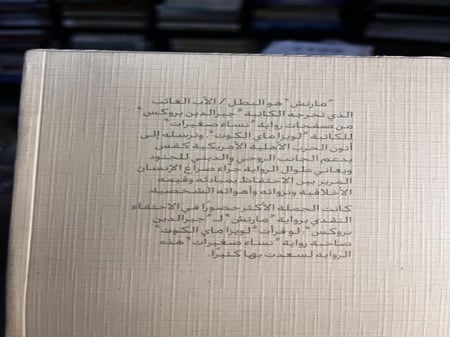 "مارتش" هو البطل / الأب الغائب
الذي تخرجه الكاتبة "جيرالدين بروكس"
من صفحات رواية "نساء صغيرات"
للكاتبة "لويزا ماي الكوت". وترسله إلى
أتون الحرب الأهلية الأمريكية كقس
يدعم الجانب الروحي والديني للجنود
ويعاني طوال الرواية جراء صراع الإنسان
المرير بين الاحتفاظ بمبادئه وقيمه
الأخلاقية ونزواته وأهوائه الشخصية.
كانت الجملة الأكثر حضورًا في الاحتفاء
النقدي برواية "مارتش" لـ "جيرالدين
بروكس": لو قرأت "لويزا ماي الكوت"
صاحبة رواية "نساء صغيرات" هذه
الرواية لسعدت بها كثيرًا.